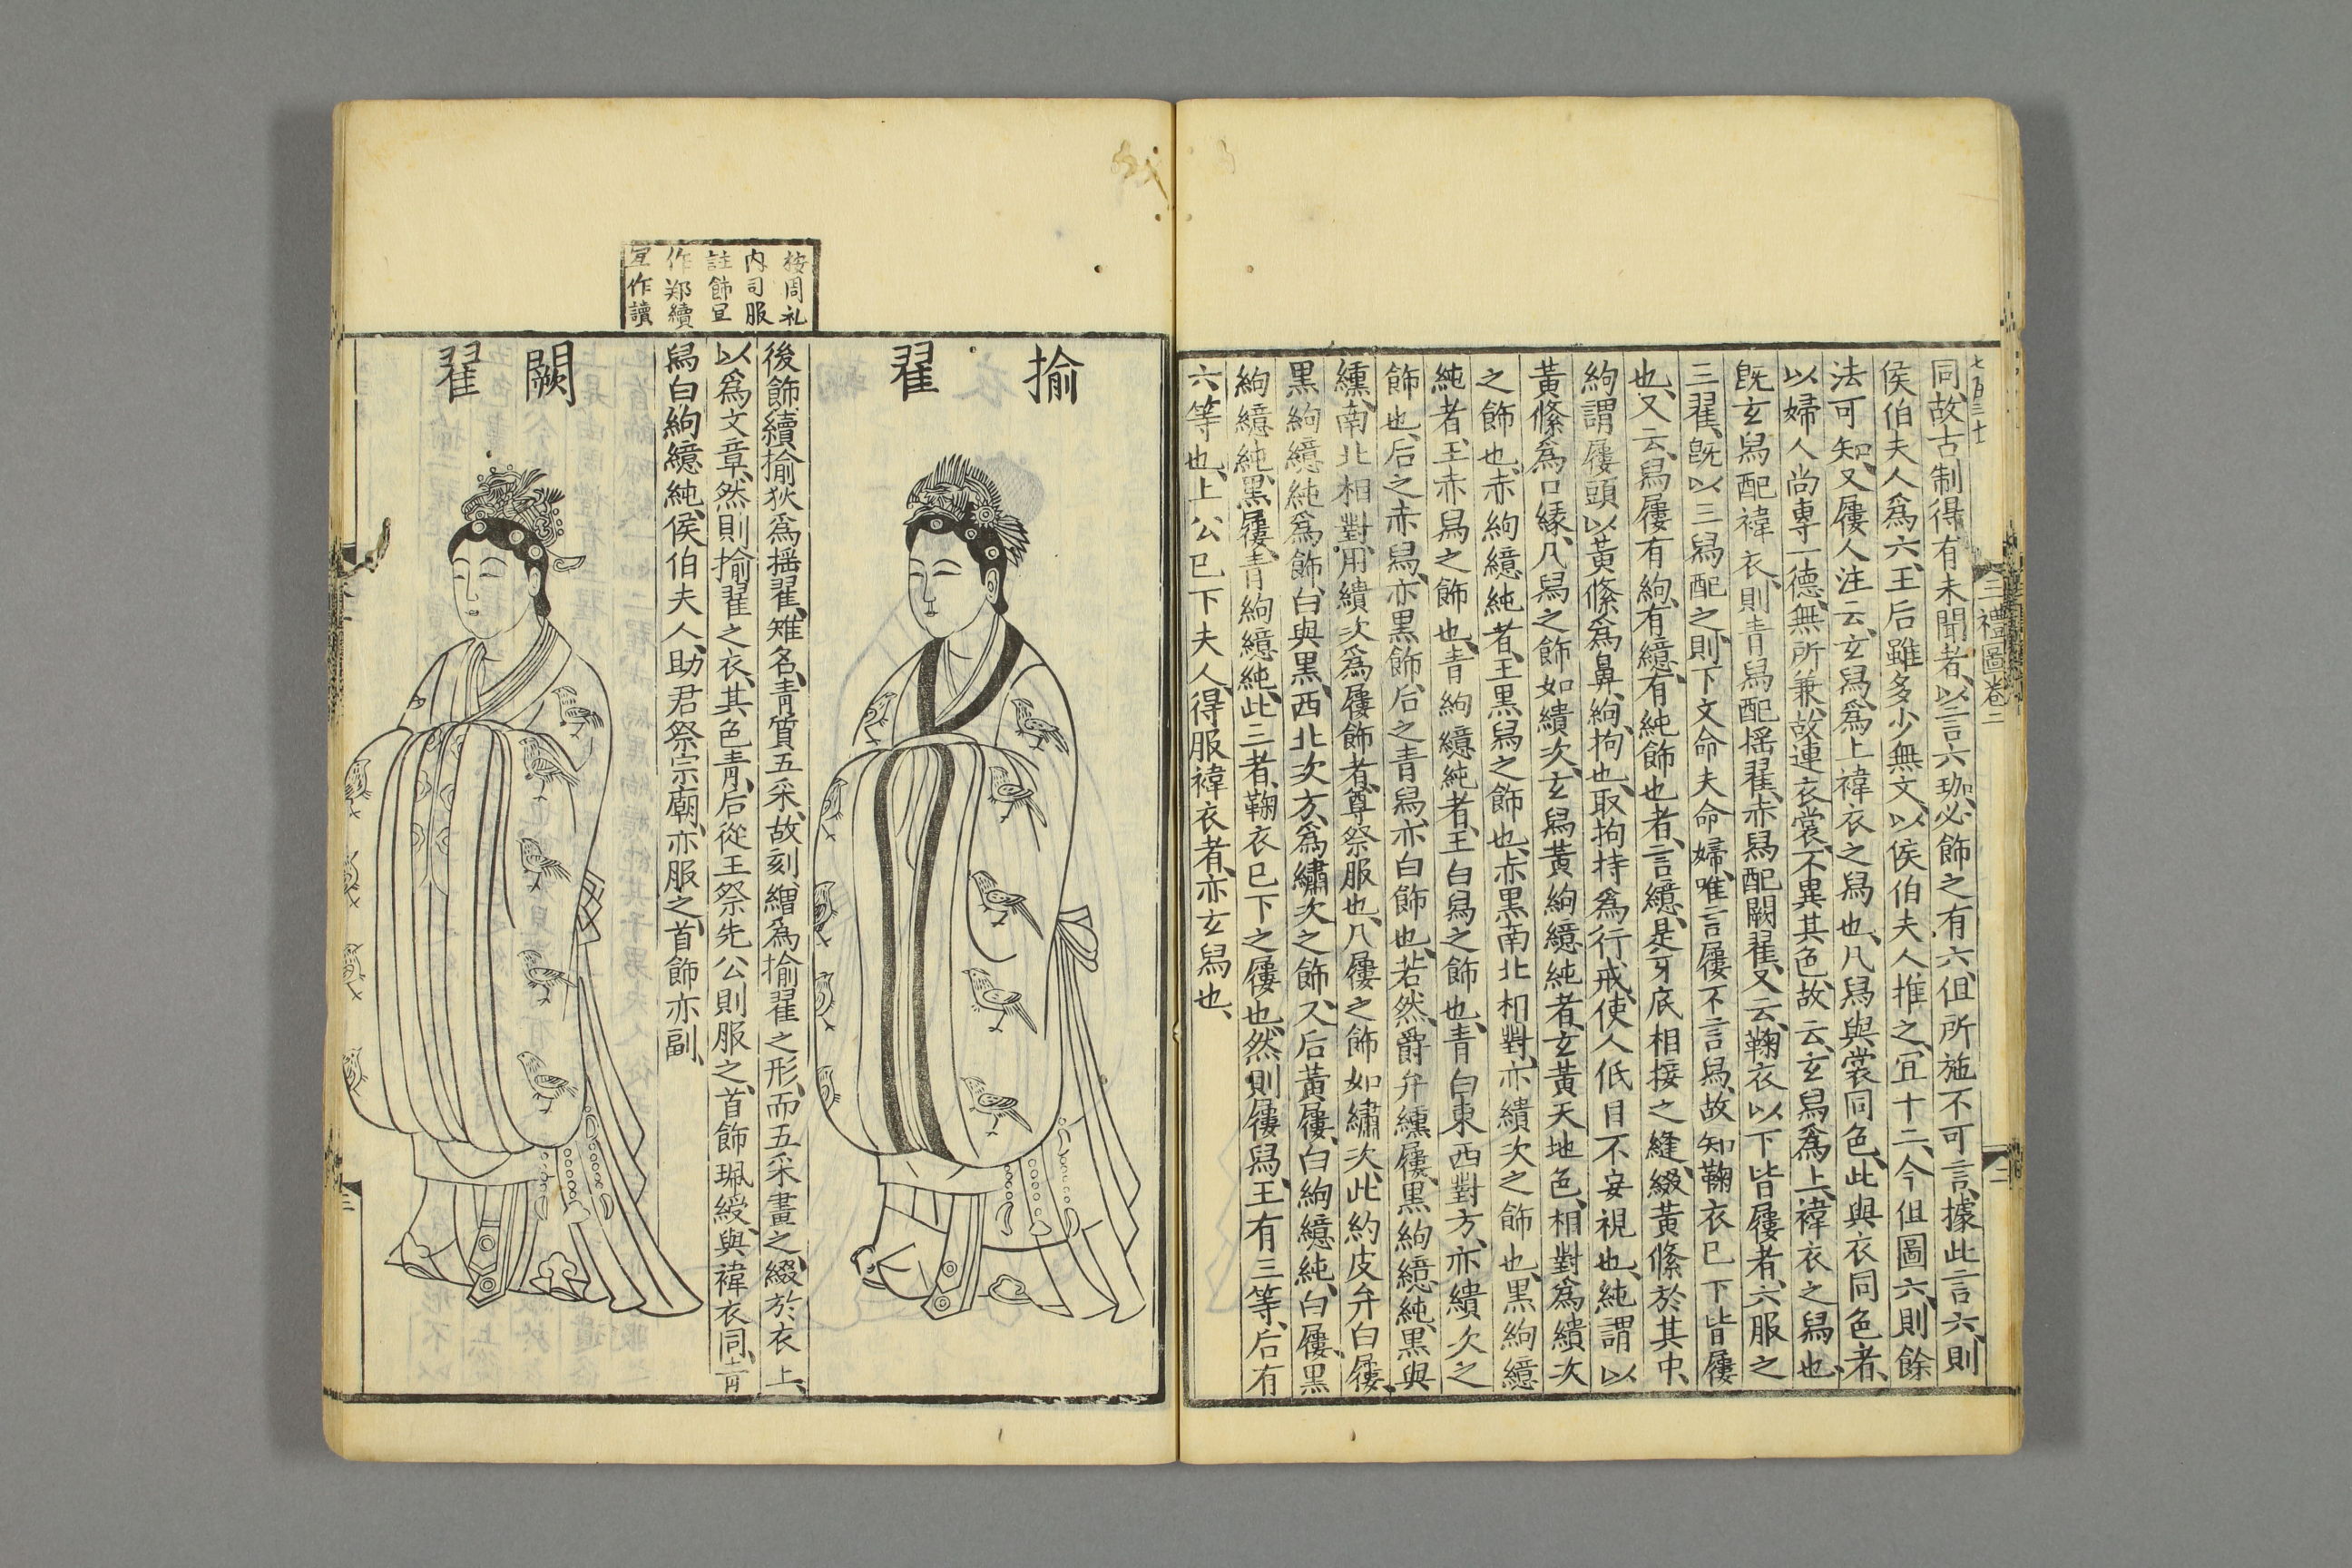 七百三十
同、故古制得有未聞者、以言六珈、必飾之有六、但所施不可言、據此言六、則
侯伯夫人爲六、王后雖多少無文、以侯伯夫人推之、宜十二、今但圖六、則餘
法可知、又屨人注云、玄舄、爲上褘衣之舄也、凡舄與裳同色、此與衣同色者、
以婦人尚專一德、無所兼、故連衣裳、不異其色、故云、玄舄爲上、褘衣之舄也、
旣玄舄配褘衣、則青舄配揺翟、赤舄配闕翟、又云、鞠衣以下皆屨者、六服之
三翟、旣以三舄配之、則下文命夫命婦、唯言屨不言舄、故知鞠衣已下皆屨
也、又云、舄屨有絇、有繶、有純飾也者、言繶、是牙底相接之縫、綴黃絛於其中、
絇謂屨頭以黃絛爲鼻、絇、拘也、取拘持爲行戒、使人低目不妄視也、純謂以
黃絛爲口緣、凡舄之飾如繢次、玄舄黃絇繶純者、玄黃天地色、相對爲繢次
之飾也、赤絇繶純者、王黑舄之飾也、赤黑南北相對、亦繢次之飾也、黑絇繶
純者、王赤舄之飾也、青絇繶純者、王白舄之飾也、青白東西對方、亦繢次之
飾也、后之赤舄、亦黑飾、后之青舄、亦白飾也、若然、爵弁纁屨、黑絇繶純、黑與
纁、南北相對、用繢次爲屨飾者、尊祭服也、凡屨之飾如繡次、此約皮弁白屨、
黑絇繶純爲飾、白與黑、西北次方、爲繡次之飾、又后黃屨、白絇繶純、白屨、黑
絇繶純、黑屨、青絇繶純、此三者、鞠衣已下之屨也、然則屨舄、王有三等、后有
六等也、上公已下夫人、得服褘衣者、亦玄舄也、
三禮圖卷二
二
揄翟
按周礼
内司服
註飾宜
作郑續
宜作讀
後飾續揄狄爲揺翟、雉名、青質五采、故刻繒爲揄翟之形、而五采畫之、綴於衣上、
以爲文章、然則揄翟之衣、其色青、后從王祭先公則服之、首飾珮綬、與褘衣同、青
舄白絇繶純、侯伯夫人、助君祭宗廟、亦服之、首飾亦副、
闕翟
三